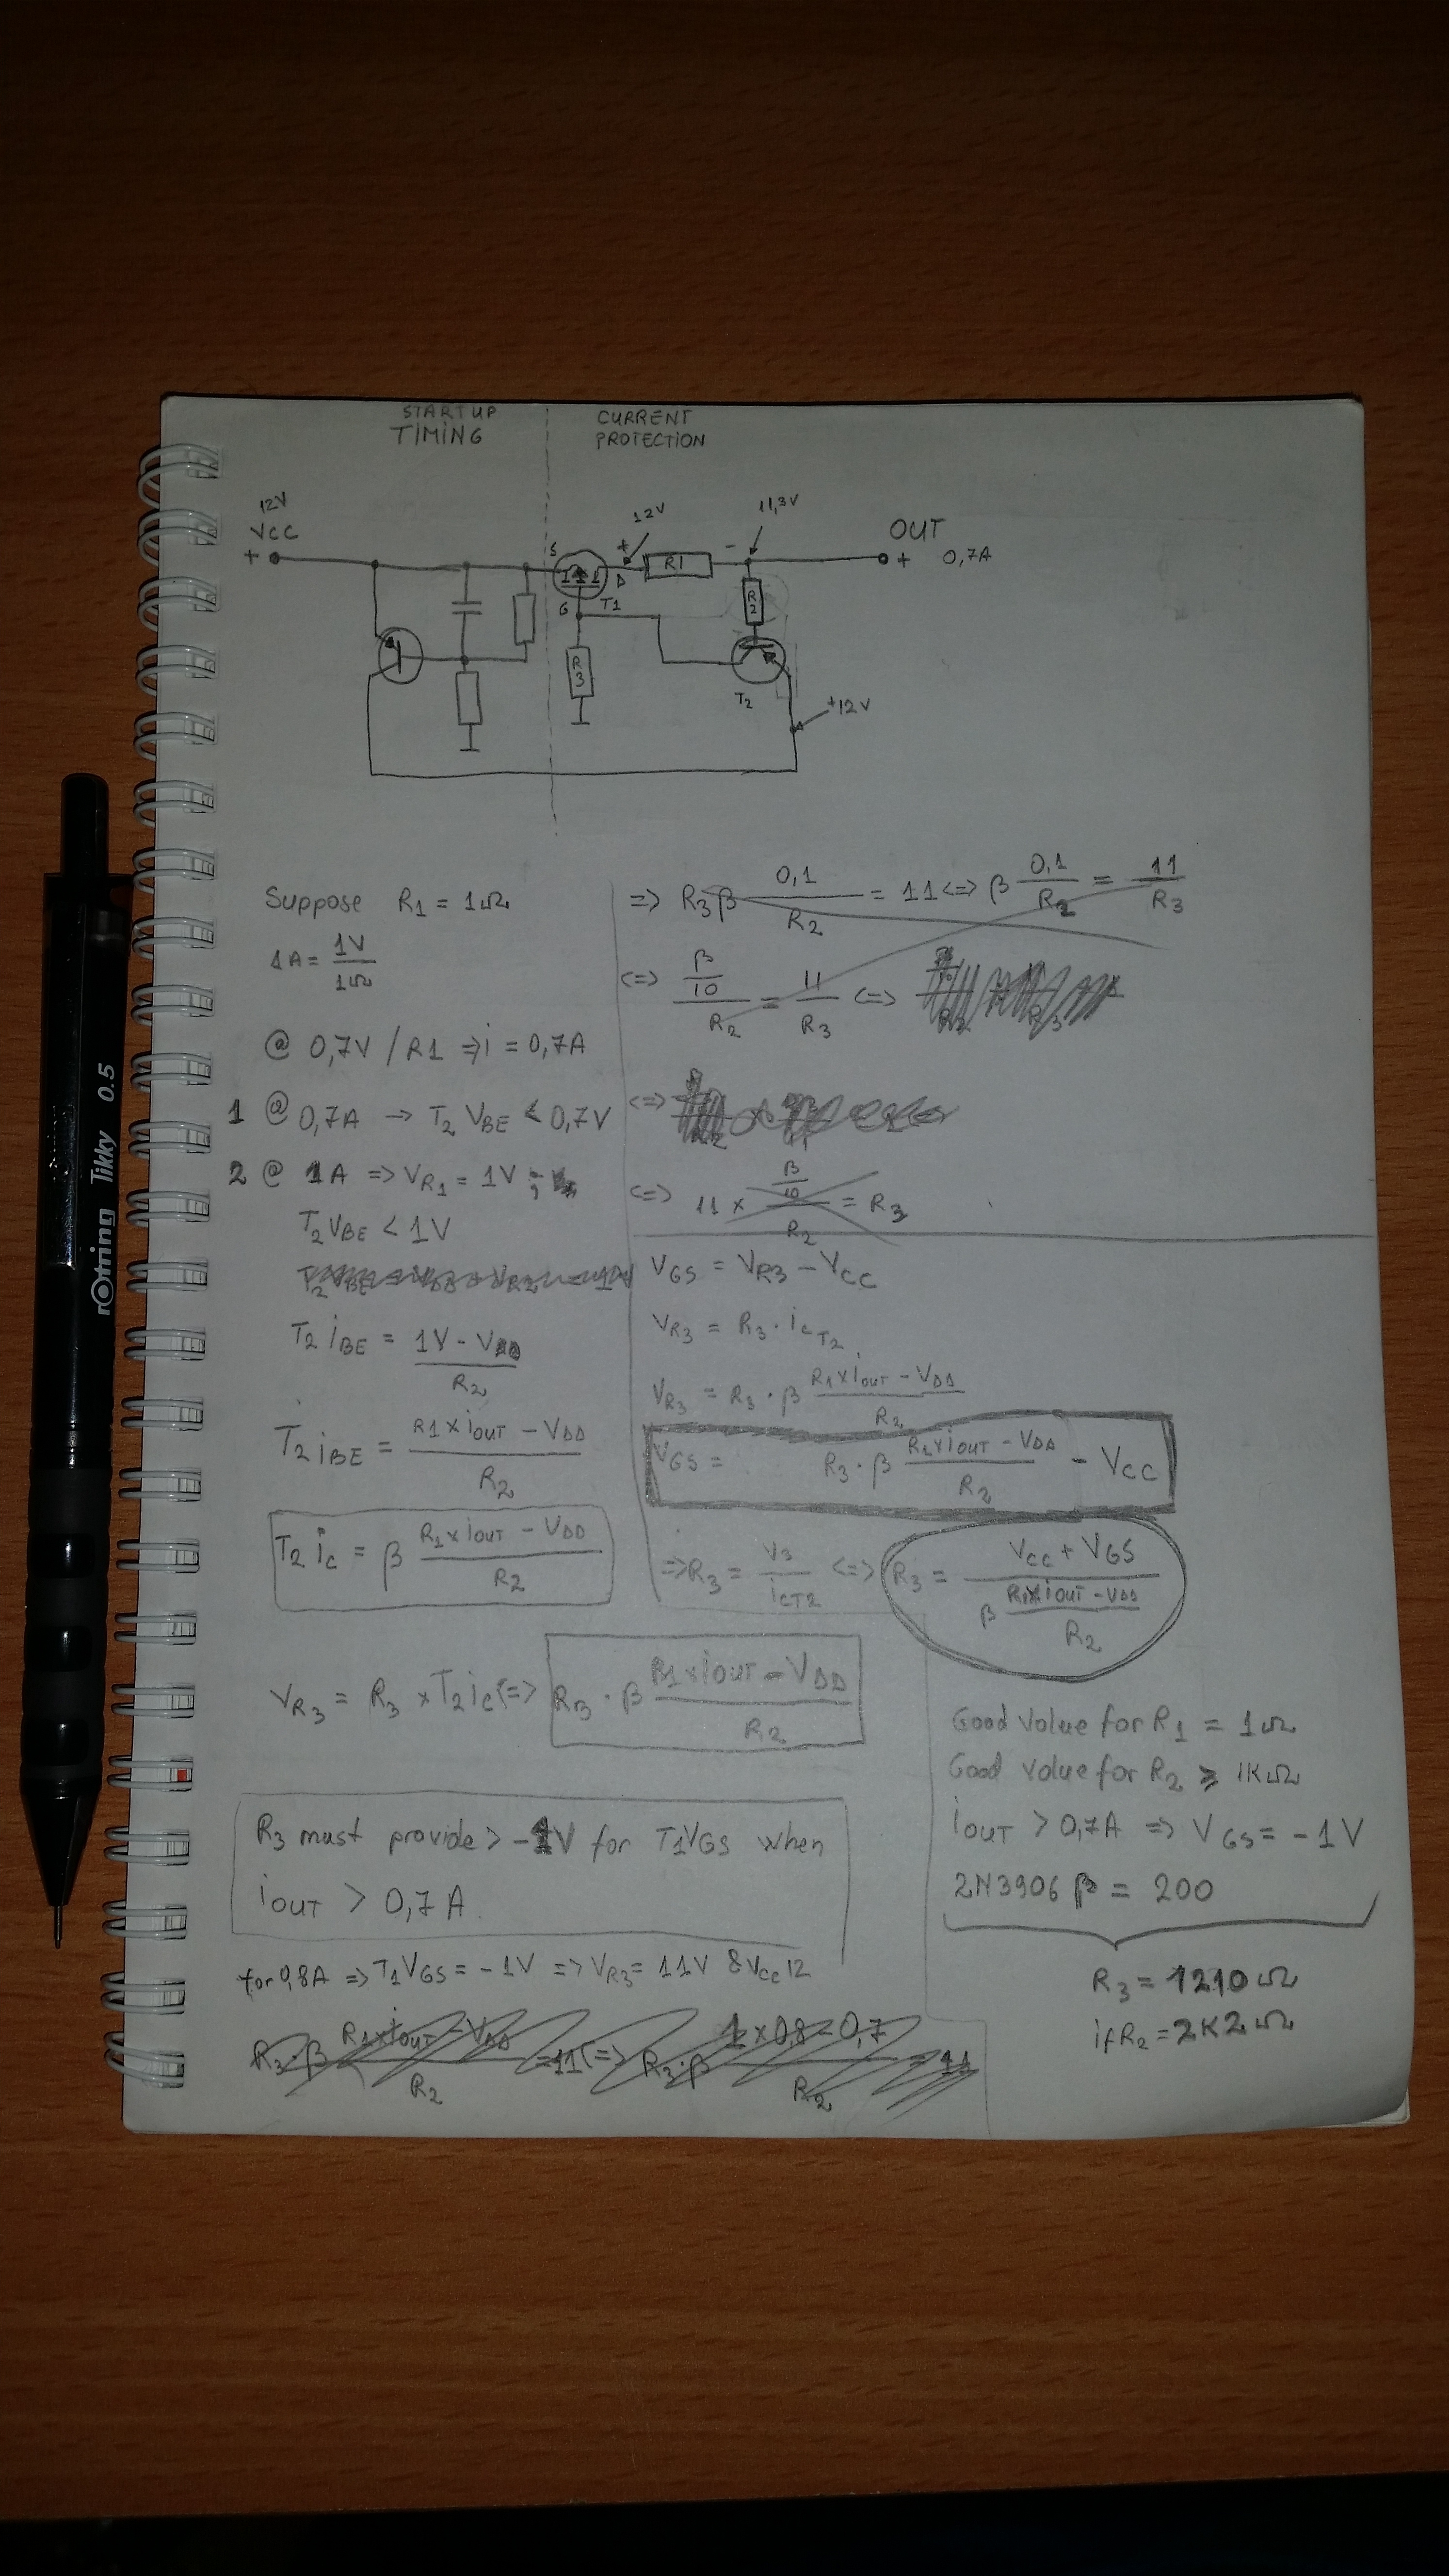 STARTUP
TIMING
CURRENT
PROTECTION
12V
VCC
+
S
G
D
T1
+
12V
R1
-
11,3V
OUT
+ 0,7A
R2
R3
T2
+12V
Suppose R1 = 1Ω
1A = 1V / 1Ω
@ 0,7V / R1 ⇒ i = 0,7A
1 @ 0,7A → T2 VBE < 0,7V
2 @ 1A ⇒ VR1 = 1V ;
T2 VBE < 1V
T2 iBE = 1V - VDD / R2
T2 iBE = R1 x iOUT - VDD / R2
T2 iC = β R1 x iOUT - VDD / R2
VR3 = R3 x T2 iC <=> R3 · β R1 x iOUT - VDD / R2
R3 must provide > -1V for T1VGS when
iOUT > 0,7 A.
for 0,8A ⇒ T1VGS = -1V ⇒ VR3 = 11V & VCC 12
R3 · β R1 x iOUT - VDD / R2 = 11 <=> R3 · β 1 x 0,8 - 0,7 / R2 = 11
=> R3 β 0,1 / R2 = 11 <=> β 0,1 / R2 = 11 / R3
<=> β/10 / R2 = 11 / R3 <=>
<=>
<=> 11 x β/10 / R2 = R3
VGS = VR3 - VCC
VR3 = R3 · iCT2
VR3 = R3 · β R1 x iOUT - VDD / R2
VGS = R3 · β R1 x iOUT - VDD / R2 - VCC
=> R3 = V3 / iCT2 <=> R3 = VCC + VGS / β R1 x iOUT - VDD / R2
Good value for R1 = 1Ω
Good value for R2 ≥ 1KΩ
iOUT > 0,7A ⇒ VGS = -1V
2N3906 β = 200
R3 = 1210Ω
if R2 = 2K2Ω
rOtring Tikky 0.5